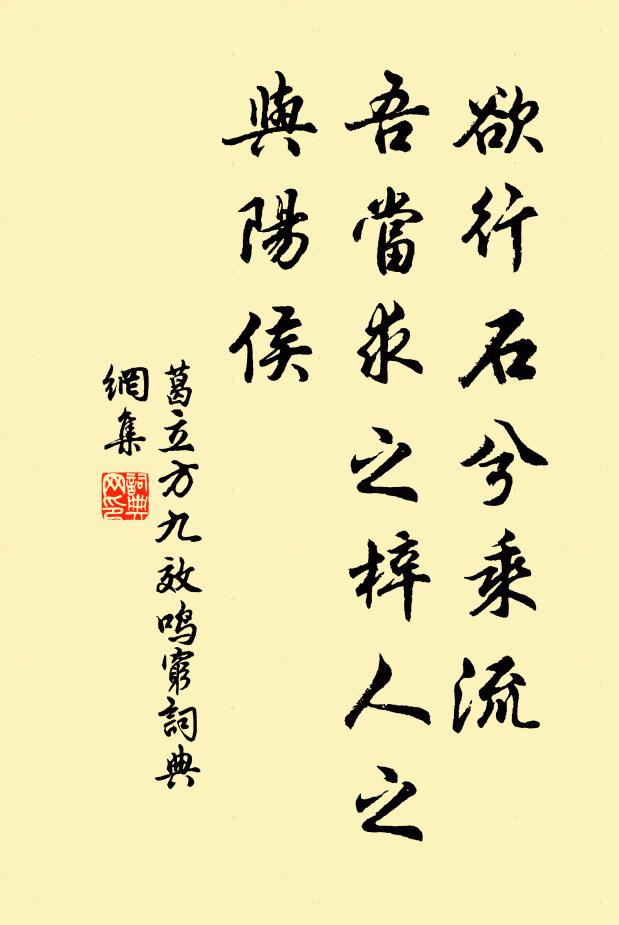 欲行石兮乘流
吾當求之梓人之
與陽侯
葛立方九效鳴窮詞典
網集
詞典網印